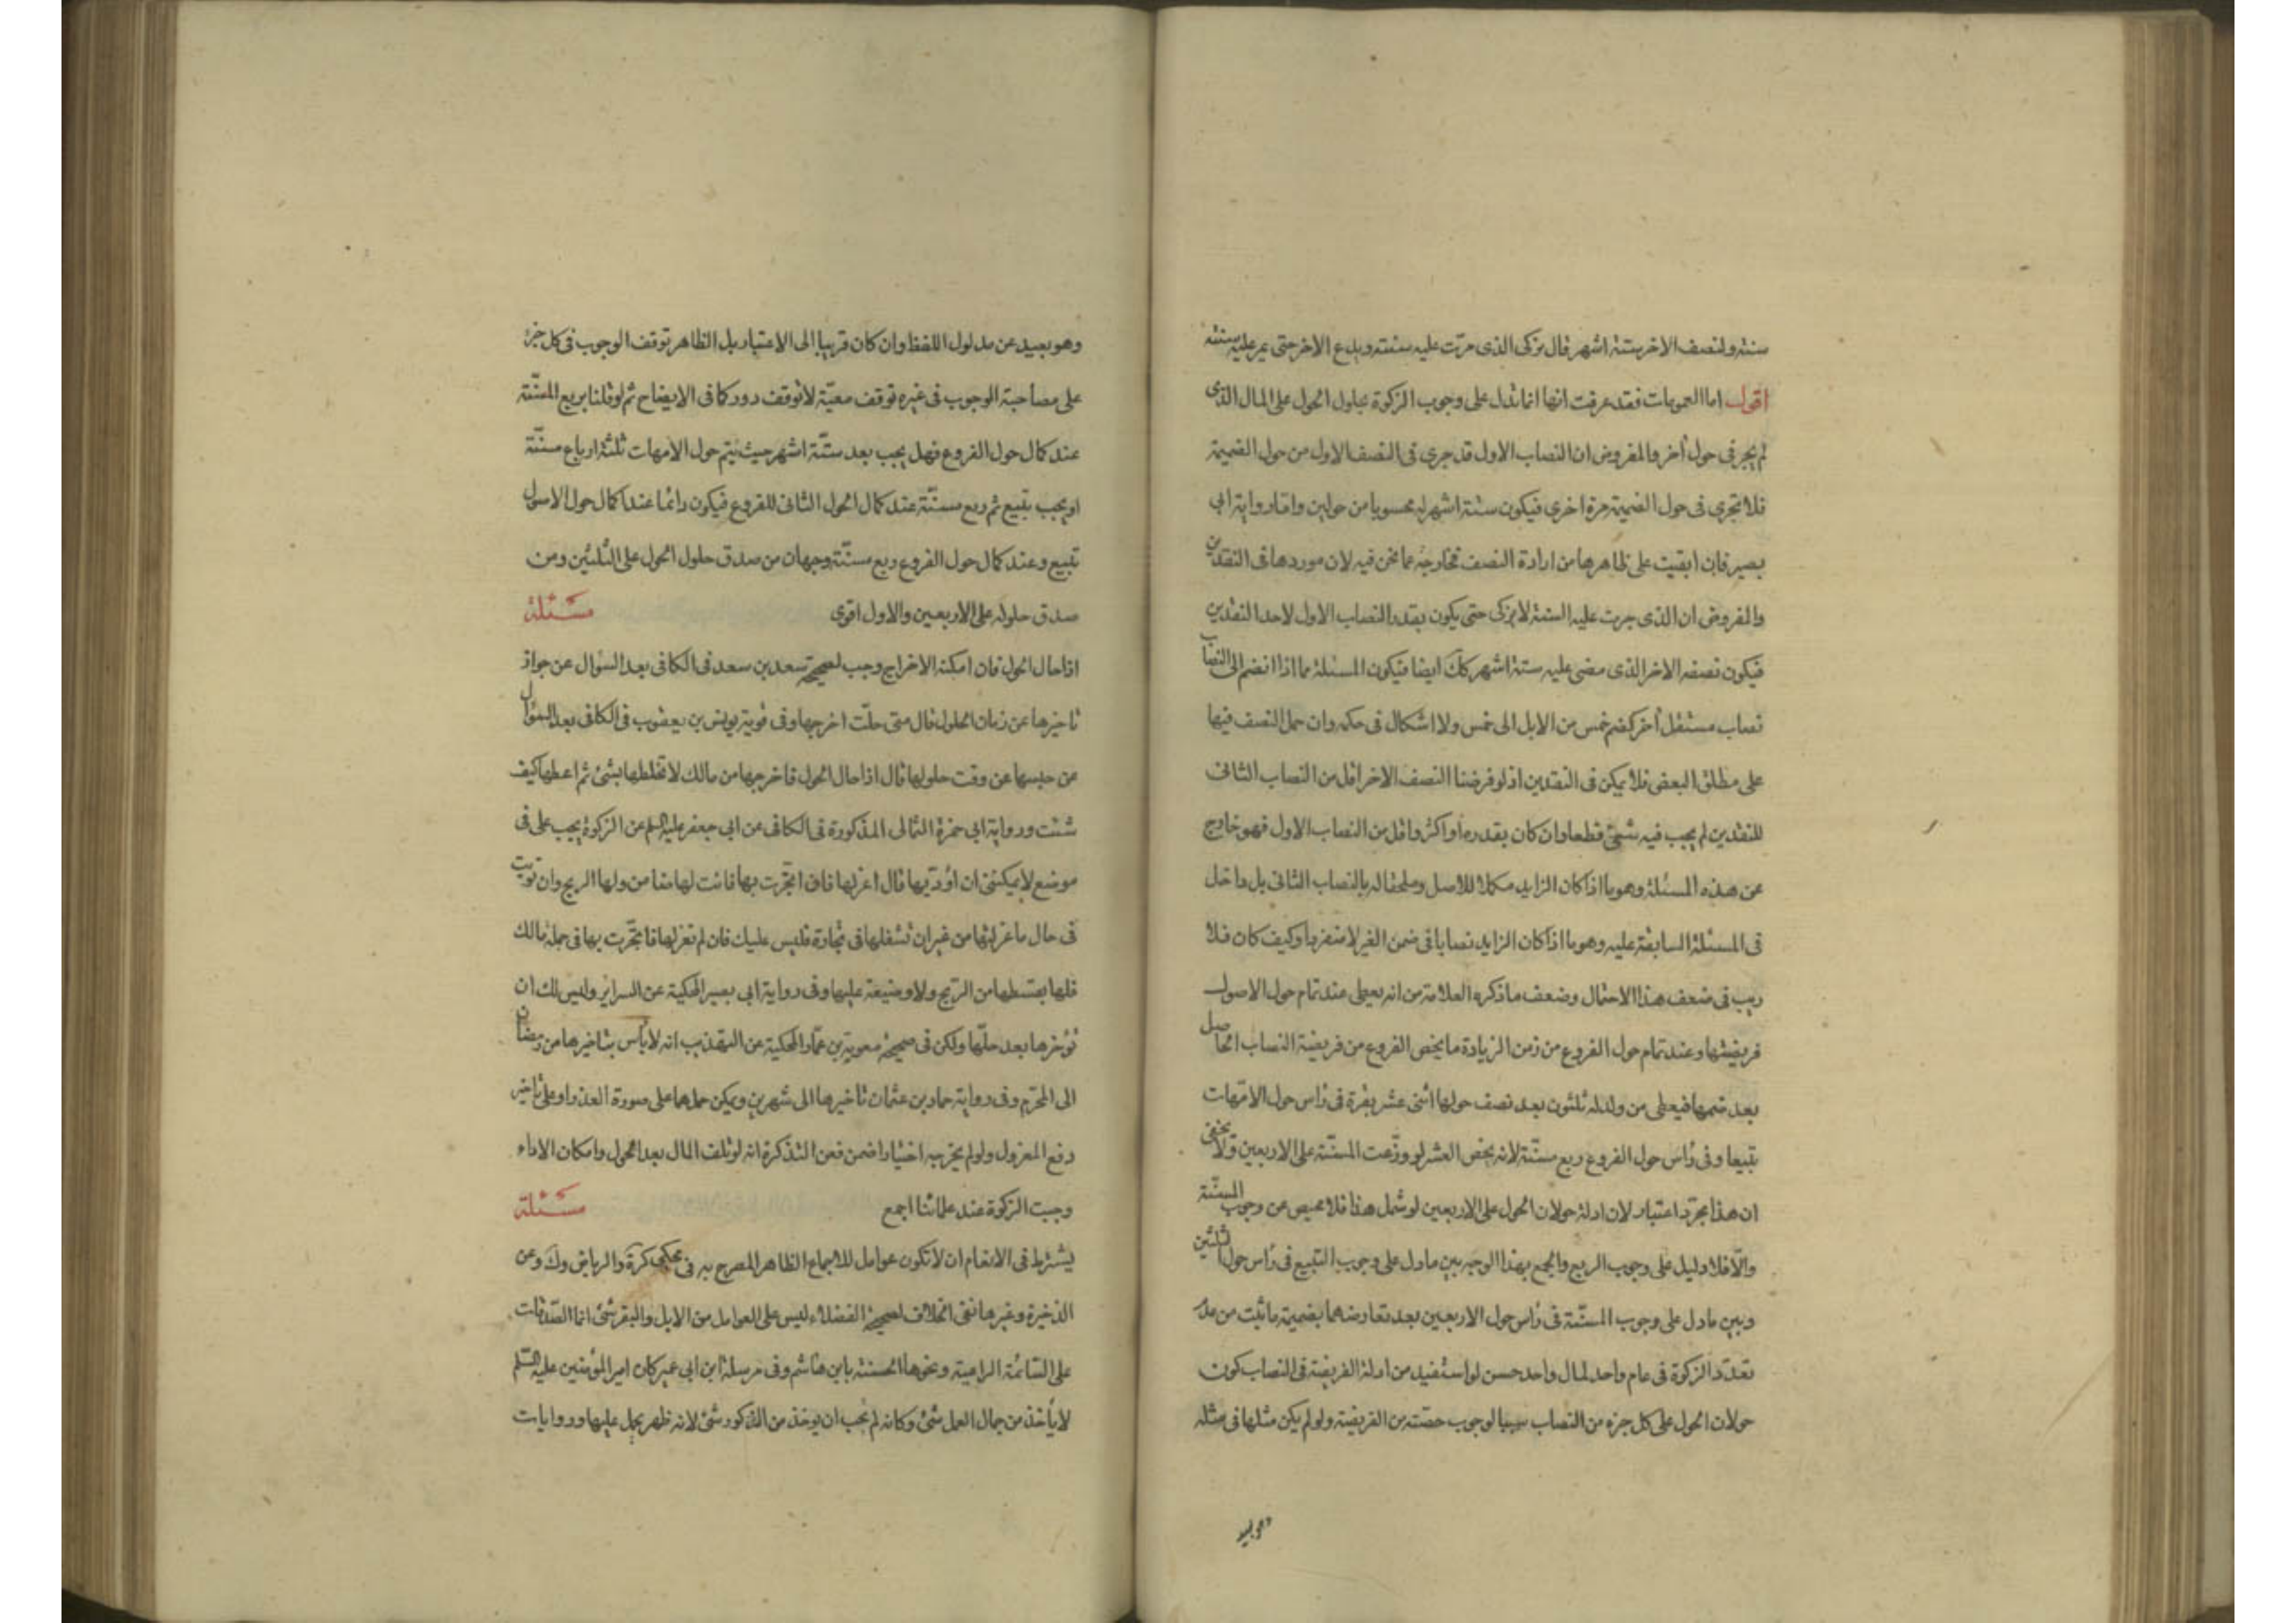 سنة ولنصف الاخر ستة اشهر قال يزكى الذى مرّت عليه سنته ويدع الاخر حتى يمر عليه سنته
اقول اما العمومات فقد عرفت انها انما تدل على وجوب الزكوة بحلول الحول على المال الذى
لم يجر فى حول آخر والمفروض ان النصاب الاول قد جرى فى النصف الاول من حول الضميمة
فلا تجرى فى حول الضميمة مرة اخرى فيكون ستة اشهر له محسوبا من حولين واما رواية ابى
بصير فان ابقيت على ظاهرها من ارادة النصف فخارجة عما نحن فيه لان موردها فى النقدين
والمفروض ان الذى جرت عليه السنة لا يزكى حتى يكون بقدر النصاب الاول لاحد النقدين
فيكون نصفه الاخر الذى مضى عليه ستة اشهر كك ايضا فيكون المسئلة مما اذا انضم الى النصاب
نصاب مستقل آخر كضم خمس من الابل الى خمس ولا اشكال فى حكمه وان حمل النصف فيها
على مطلق البعض فلا يمكن فى النقدين اذ لو فرضنا النصف الاخر اقل من النصاب الثانى
للنقدين لم يجب فيه شئ قطعا وان كان بقدره او اكثر واقل من النصاب الاول فهو خارج
عن هذه المسئلة وهو ما اذا كان الزايد مكملا للاصل وملحقا له بالنصاب الثانى بل داخل
فى المسئلة السابقة عليه وهو ما اذا كان الزايد نصابا فى ضمن الغير لا منفردا وكيف كان فلا
ريب فى ضعف هذا الاحتمال وضعف ما ذكره العلامة من انه يعطى عند تمام حول الاصول
فريضتها وعند تمام حول الفروع من زمن الزيادة ما يخص الفروع من فريضة النصاب الحاصل
بعد ضمها فيعطى من ولد له ثلثون بعد نصف حولها اثنى عشر بقرة فى رأس حول الامّهات
تبيعا وفى رأس حول الفروع ربع مسنّة لانه يخص العشر لو وزّعت المسنّة على الاربعين ولا يخفى
ان هذا مجرّد اعتبار لان ادلة حولان الحول على الاربعين لو شمل هذا فلا محيص عن وجوب المسنّة
والّا فلا دليل على وجوب الربع والجمع بهذا الوجه بين ما دل على وجوب التبيع فى رأس حول الثلثين
وبين ما دل على وجوب المسنّة فى رأس حول الاربعين بعد تعارضهما بضميمة ما ثبت من عدم
تعدّد الزكوة فى عام واحد لمال واحد حسن لو استفيد من ادلة الفريضة فى النصاب كون
حولان الحول على كل جزء من النصاب سببا لوجوب حصّته من الفريضة ولو لم يكن مثلها فى مثله
وهو بعيد
وهو بعيد عن مدلول اللفظ وان كان قريبا الى الاعتبار بل الظاهر توقف الوجوب فى كل جزء
على مصاحبة الوجوب فى غيره توقف معيّة لا توقف دور كما فى الايضاح ثم لو قلنا بربع المسنّة
عند كمال حول الفروع فهل يجب بعد ستّة اشهر حيث يتم حول الامهات ثلثة ارباع مسنّة
او يجب تبيع ثم ربع مسنّة عند كمال الحول الثانى للفروع فيكون دائما عند كمال حول الاصول
تبيع وعند كمال حول الفروع ربع مسنّة وجهان من صدق حلول الحول على الثلثين ومن
صدق حلوله على الاربعين والاول اقوى مسئلة
اذا حال الحول فان امكنه الاخراج وجب لصحيحة سعد بن سعد فى الكافى بعد السؤال عن جواز
تاخيرها عن زمان الحلول قال متى حلّت اخرجها وفى قوية يونس بن يعقوب فى الكافى بعد السؤال
عن حبسها عن وقت حلولها قال اذا حال الحول فاخرجها من مالك لا تخلطها بشئ ثم اعطها كيف
شئت ورواية ابى حمزة الثمالى المذكورة فى الكافى عن ابى جعفر عليه السلم عن الزكوة يجب على فى
موضع لا يمكننى ان اؤدّيها قال اعزلها فان اتجرت بها فانت لها ضامن ولها الربح وان تويت
فى حال ما عزلتها من غير ان تشغلها فى تجارة فليس عليك فان لم تعزلها فاتجرت بها فى جملة مالك
فلها بقسطها من الربح ولا وضيعة عليها وفى رواية ابى بصير المحكية عن السرائر وليس لك ان
تؤخرها بعد حلّها ولكن فى صحيحة معوية بن عمّار المحكية عن التهذيب انه لا بأس بتاخيرها من رمضان
الى المحرّم وفى رواية حماد بن عثمان تاخيرها الى شهرين ويمكن حملهما على صورة العذر او على تاخير
دفع المعزول ولو لم يخرجه اختيارا ضمن فعن التذكرة انه لو تلف المال بعد الحول وامكان الاداء
وجبت الزكوة عند علمائنا اجمع مسئلة
يشترط فى الانعام ان لا تكون عوامل للاجماع الظاهر المصرح به فى محكى كرة والرياض وك وعن
الذخيرة وغيرها نفى الخلاف لصحيحة الفضلاء ليس على العوامل من الابل والبقر شئ انما الصّدقات
على السّائمة الراعية ونحوها الحسنة بابن هاشم وفى مرسلة ابن ابى عمير كان امير المؤمنين عليه السّلم
لا يأخذ من جمال العمل شئ وكانه لم يجب ان يوخذ من الذكور شئ لانه ظهر يحمل عليها وروايات